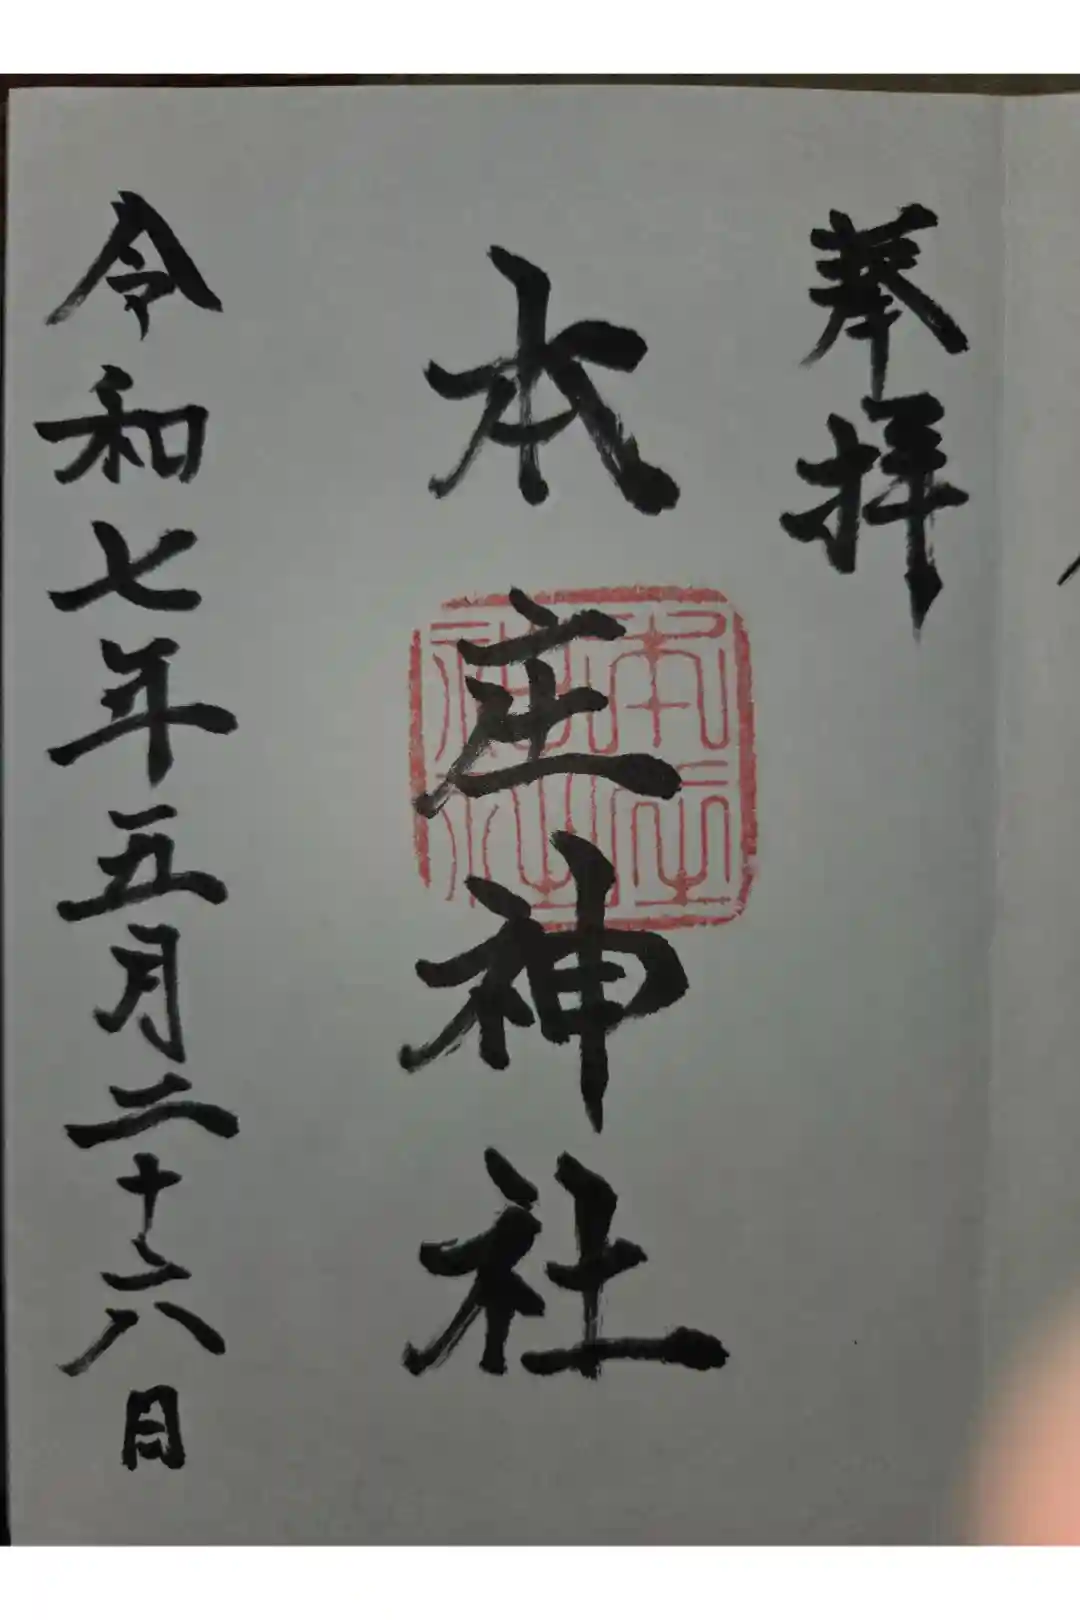 奉拝
本庄神社
本庄
神社
令和七年五月二十六日